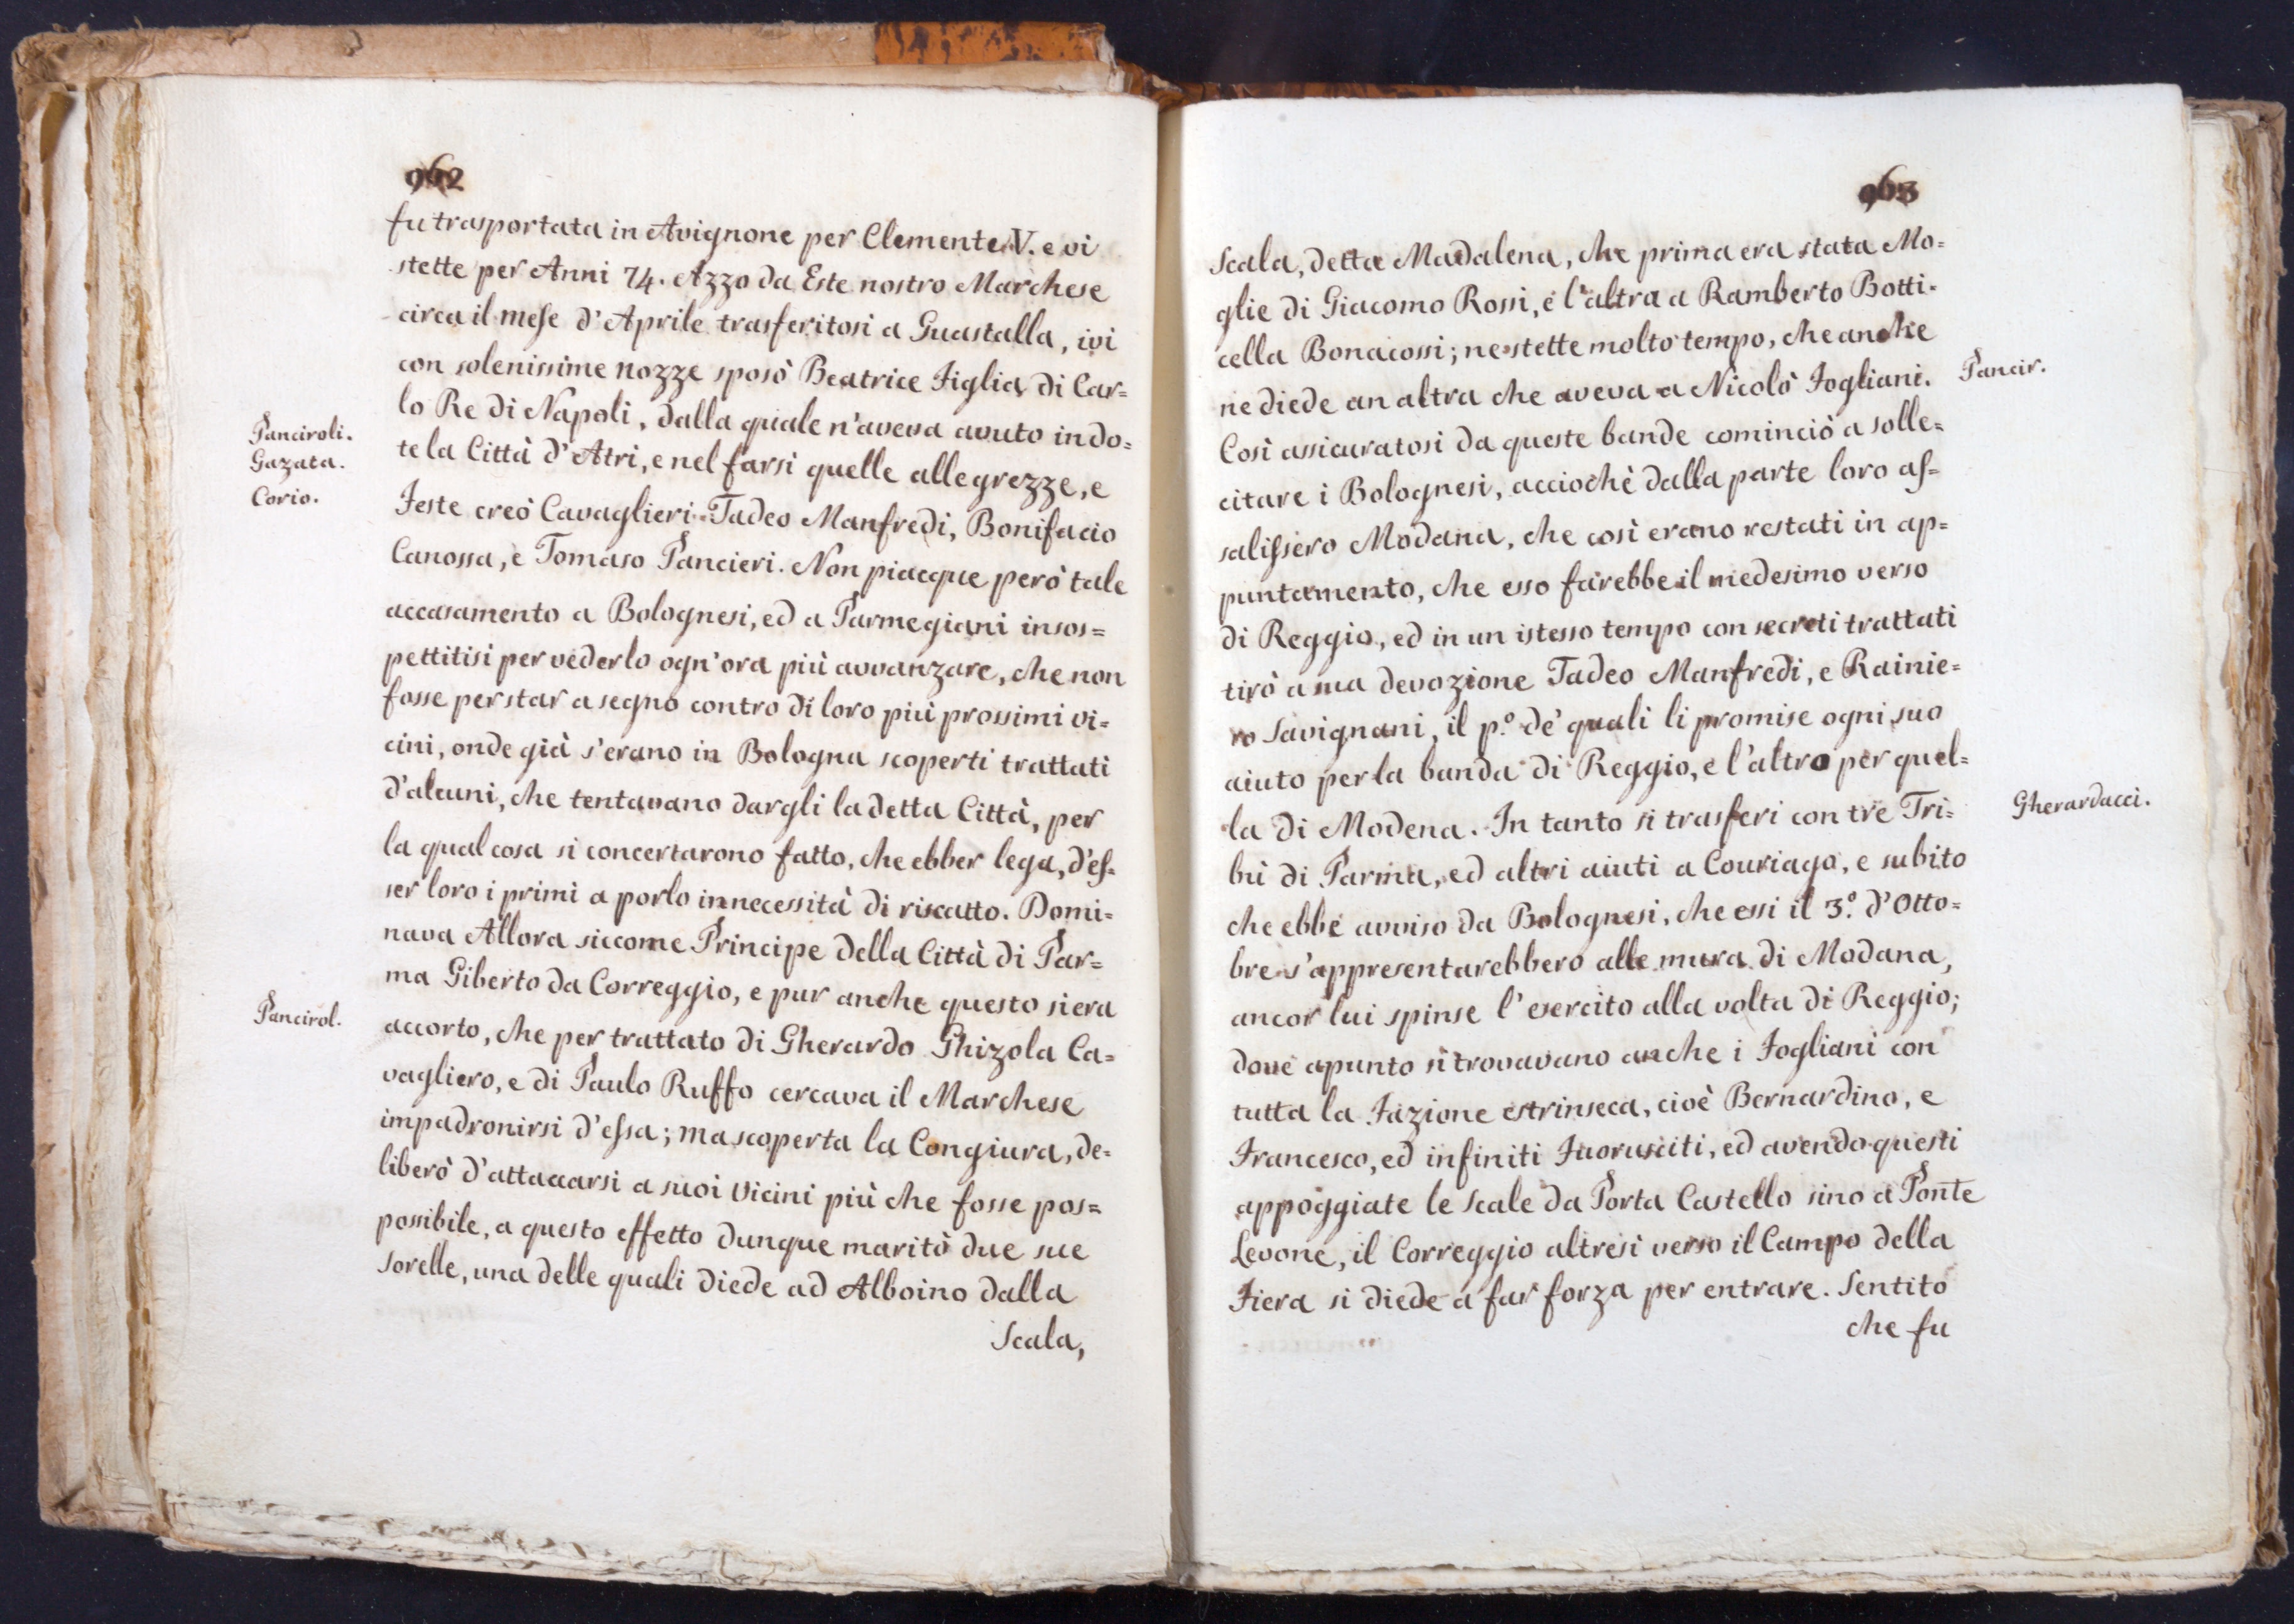 962
fu trasportata in Avignone per Clemente V. e vi
stette per Anni 74. Azzo da Este nostro Marchese
circa il mese d'Aprile trasferitosi a Guastalla, ivi
con solenissime nozze sposò Beatrice Figlia di Car=
lo Re di Napoli, dalla quale n'aveva avuto in do=
Panciroli.
Gazata.
Corio.
te la Città d'Atri, e nel farsi quelle allegrezze, e
Feste creò Cavaglieri Tadeo Manfredi, Bonifacio
Canossa, e Tomaso Pancieri. Non piacque però tale
accasamento a Bolognesi, ed a Parmegiani insos=
pettitisi per vederlo ogn'ora più avvanzare, che non
fosse per star a segno contro di loro più prossimi vi=
cini, onde già s'erano in Bologna scoperti trattati
d'alcuni, che tentavano dargli la detta Città, per
la qual cosa si concertarono fatto, che ebber lega, d'es=
ser loro i primi a porlo in necessità di riscatto. Domi=
nava Allora siccome Principe della Città di Par=
ma Giberto da Correggio, e pur anche questo si era
Pancirol.
accorto, che per trattato di Gherardo Ghizola Ca=
vagliero, e di Paulo Ruffo cercava il Marchese
impadronirsi d'essa; ma scoperta la Congiura, de=
liberò d'attacarsi a suoi vicini più che fosse pos=
possibile, a questo effetto dunque maritò due sue
sorelle, una delle quali diede ad Alboino dalla
Scala,
963
Scala, detta Madalena, che prima era stata Mo=
glie di Giacomo Rossi, e l'altra a Ramberto Botti=
cella Bonacossi; ne stette molto tempo, che anche
ne diede an altra che aveva a Nicolò Fogliani.
Pancir.
Così assicuratosi da queste bande cominciò a solle=
citare i Bolognesi, acciochè dalla parte loro as=
salissero Modana, che così erano restati in ap=
puntamento, che esso farebbe il medesimo verso
di Reggio, ed in un istesso tempo con secreti trattati
tirò a sua devozione Tadeo Manfredi, e Rainie=
ro Savignani, il p.º de' quali li promise ogni suo
aiuto per la banda di Reggio, e l'altro per quel=
la di Modena. In tanto si trasferi con tre Tri=
Gherardacci.
bù di Parma, ed altri aiuti a Couriago, e subito
che ebbe avviso da Bolognesi, che essi il 3.º d'Otto=
bre s'appresentarebbero alle mura di Modana,
ancor lui spinse l'esercito alla volta di Reggio;
dove apunto si trovavano anche i Fogliani con
tutta la Fazione estrinseca, cioè Bernardino, e
Francesco, ed infiniti Fuorusciti, ed avendo questi
appoggiate le Scale da Porta Castello sino a Ponte
Levone, il Correggio altresì verso il Campo della
Fiera si diede a far forza per entrare. Sentito
che fu